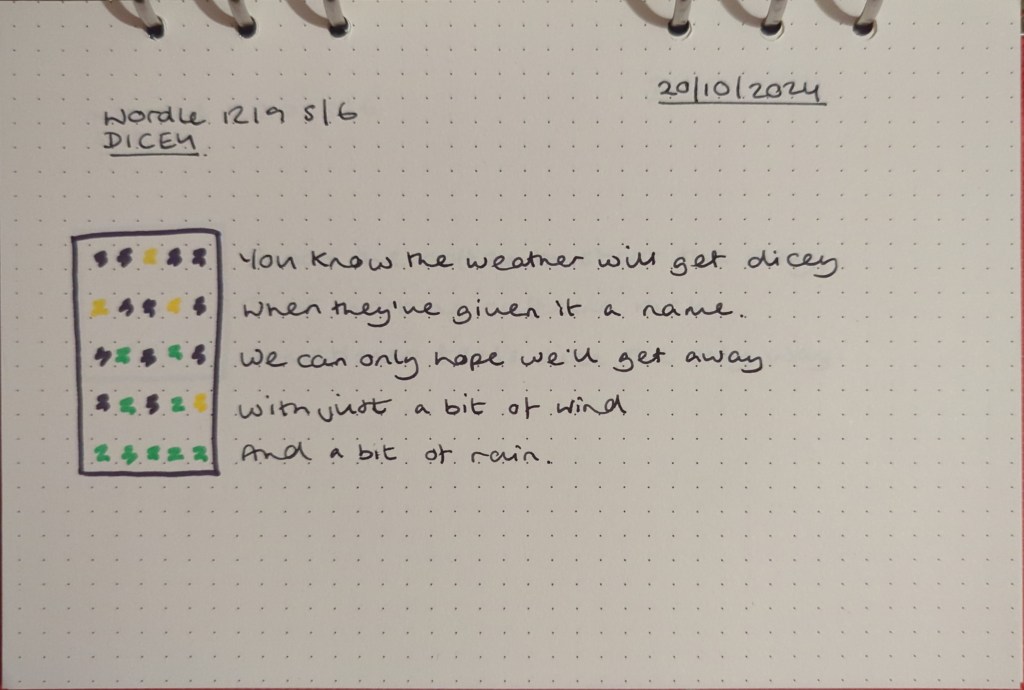 20/10/2024
Wordle 1219 5/6
DICEY
You know the weather will get dicey
when they've given it a name.
We can only hope we'll get away
with just a bit of wind
And a bit of rain.